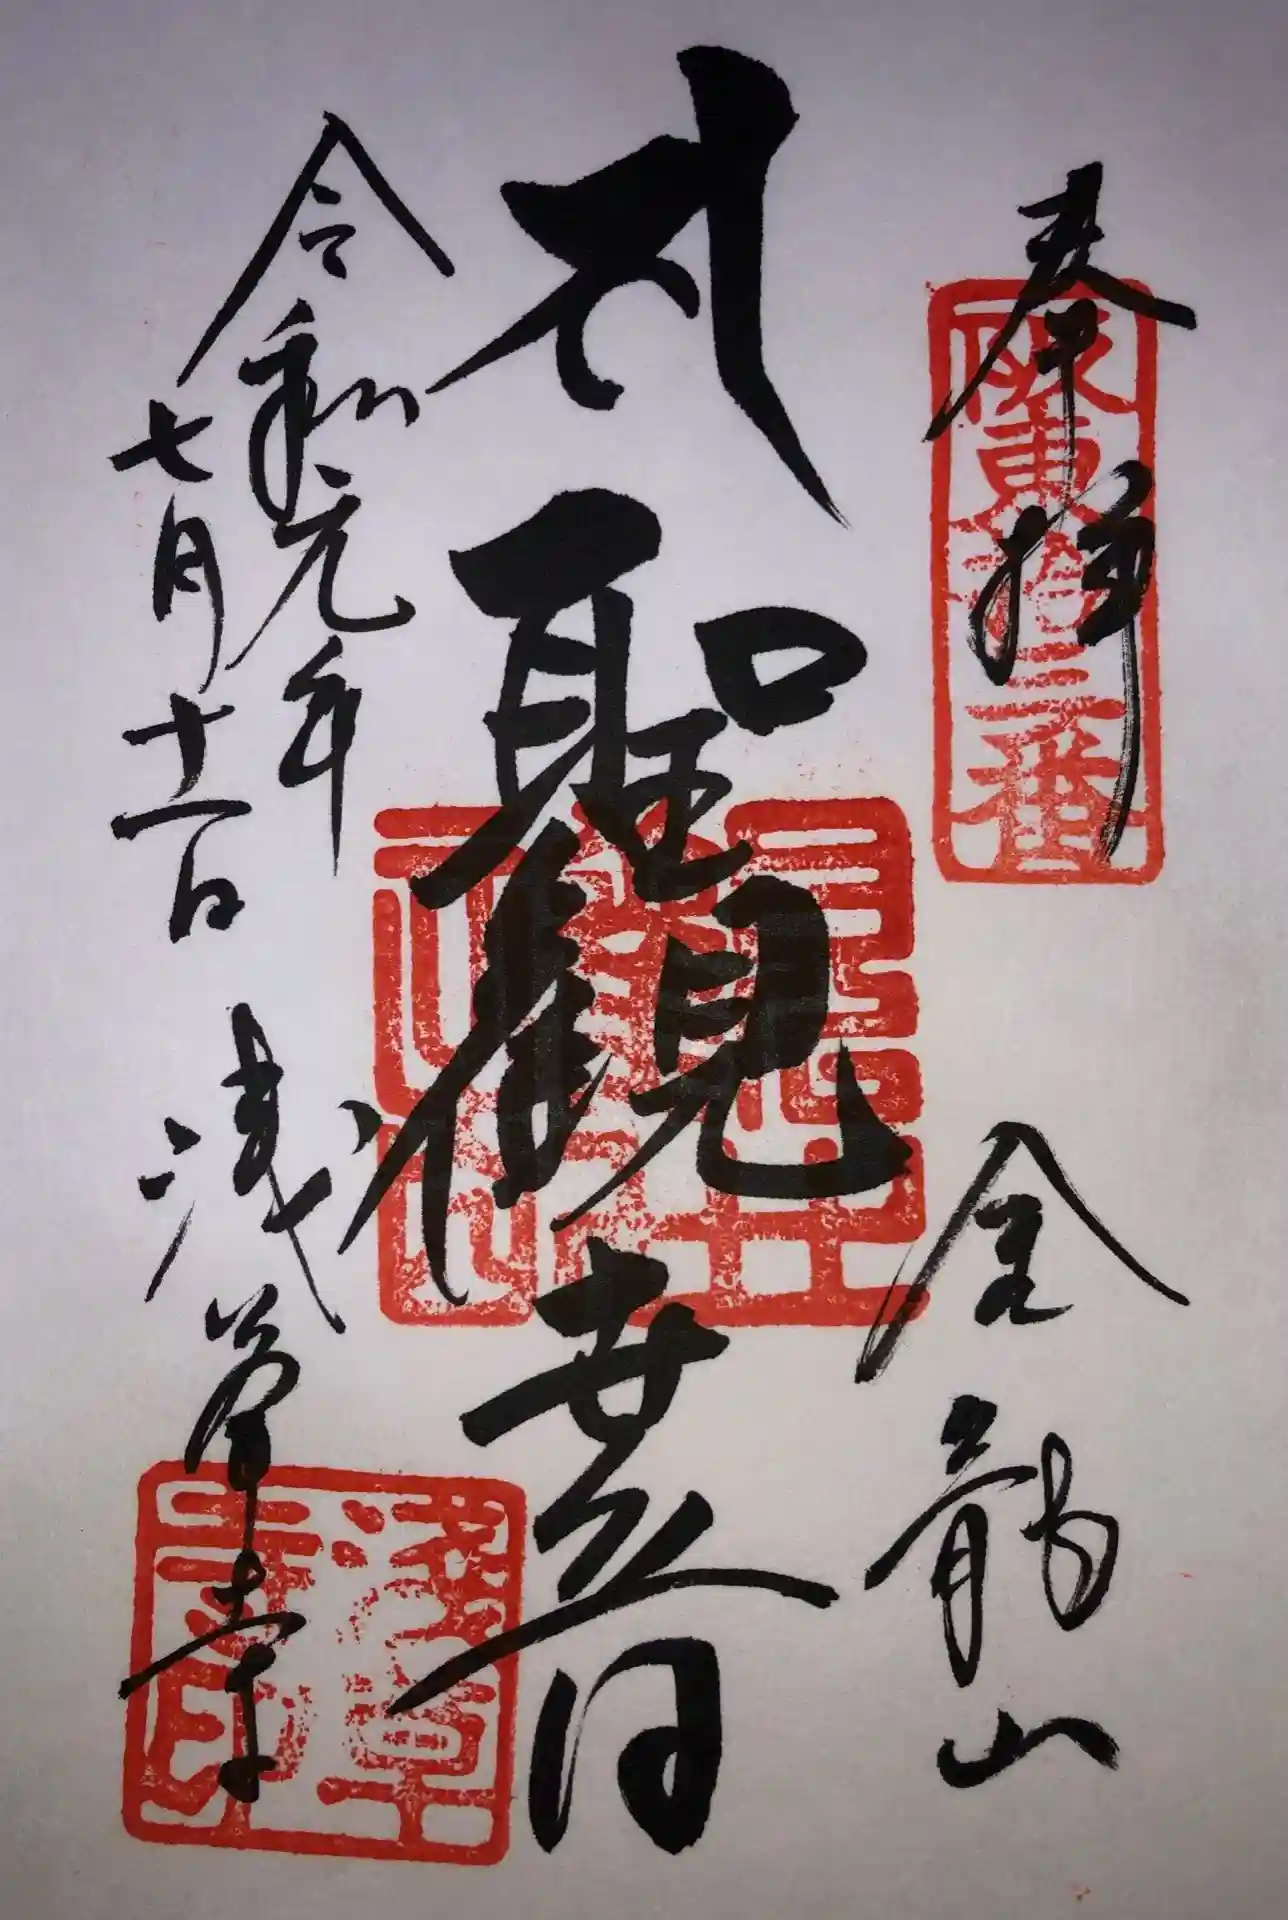 奉拝
坂東拾三番
金龍山
聖観世音
令和元年
七月十一日
浅草寺
浅草寺印